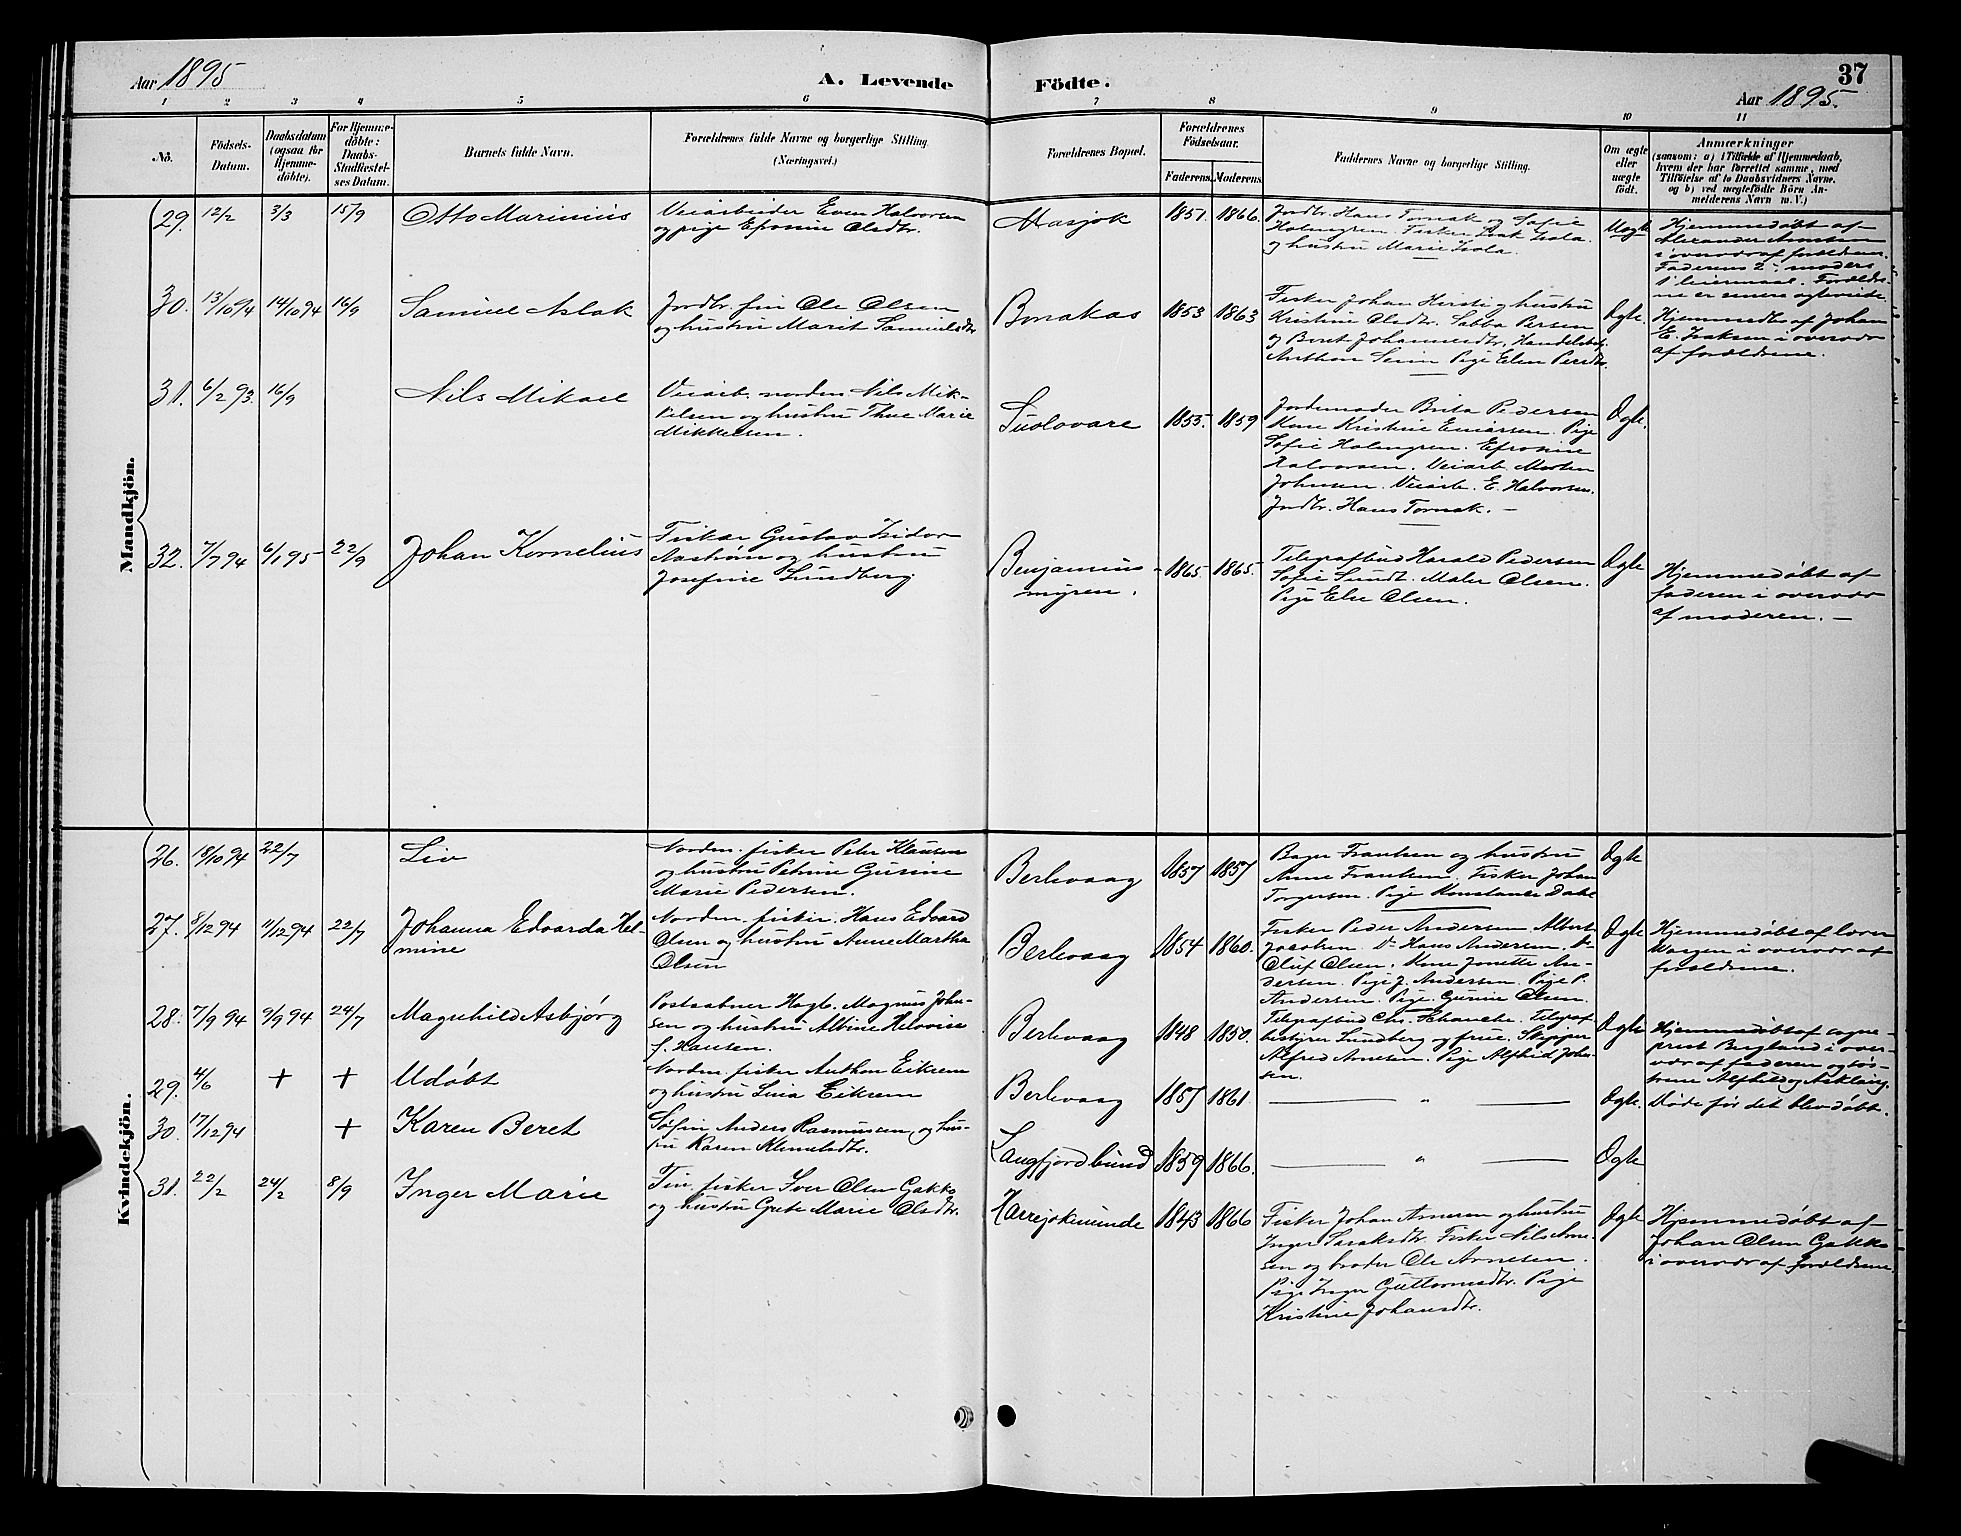 Aar 1895
A. Levende
Födte.
37
Aar 1895.
1 2 3 4 5 6 7 8 9 10 11
No.
Födsels-Datum.
Daabsdatum (ogsaa for Hjemmedöbte).
For Hjemmedöbte: Daabs-Stadfæstelses Datum.
Barnets fulde Navn.
Forældrenes fulde Navne og borgerlige Stilling. (Næringsvei.)
Forældrenes Bopæl.
Forældrenes Födselsaar.
Faderens. Moderens.
Faddernes Navne og borgerlige Stilling.
Om ægte eller uægte födt.
Anmærkninger
(saasom: a) i Tilfælde af Hjemmedaab, hvem der har forrettet samme, med Tilföielse af to Daabsvidners Navne, og b) ved uægtefödte Börn Anmelderens Navn m. V.)
Mandkjön.
29. 12/2 3/3 15/9 Otto Marinius
Veiarbeider Even Halvorsen
og pige Efrosine Olsdtr.
Masjok 1851. 1866.
Jordbr. Hans Tornak og Sofie
Holmgren. Fisker Isak Isola
og hustru Marie Isola
Uægte
Hjemmedøbt af
Alexander
i overvær af forældrene.
Faderens 2', moders
1' leiermaal.
30. 13/10 94 14/10 94 16/9 Samuel Aslak
Jordbr. fin Ole Olsen
og hustru Marit Samuelsdtr.
Bonakas 1853 1863
Fisker Johan Hirsti og hustru
Kristine Olsdtr. Sabba Persen
og Beret Johannesdtr. Handelsbetj.
Anthon Pige Elen Persdtr.
Ægte.
Hjemmedbt af Johan
E. Isaksen i overvær
af forældrene.
31. 6/2 93. 16/9 Nils Mikael
Veiarb. nordm. Nils Mik-
kelsen og hustru Thue Marie
Mikkelsen.
Suolovare 1855. 1859
Jordemoder Brita Pedersen
Kone Kristine Einarsen. Pige
Sofie Holmgren. Efrosine
Halvorsen. Veiarb. Morten
Johnsen. Veiarb. E. Halvorsen.
Jordbr. Hans Tornak. —
Ægte.
32. 7/7 94 6/1 95 22/9 Johan Kornelius
Fisker Gustav Isidor
Aastrøm og hustru
Josefine Lundberg
Benjamins-
myren. 1865. 1865.
Telegrafbud Harald Pedersen
Sofie Lundt. Maler Olsen.
Pige Else Olsen.
Ægte
Hjemmedøbt af
faderen i overvær
af moderen. —
Kvindekjön.
26. 18/10 94 22/7 Liv
Nordm. fisker Peter Klausen
og hustru Petrine Gurine
Marie Pedersen.
Berlevaag 1857 1857
Bager Frantsen og hustru
Anne Frantsen. Fisker Johan
Torgersen. Pige Konstanse Dahl
Ægte
27. 8/12 94 11/12 94 22/7 Johanna Edvarda Hel-
mine
Nordm. fisker. Hans Edvard
Olsen og hustru Anne Martha
Olsen
Berlevaag 1854 1860.
Fisker Peder Andersen Albert
Jacobsen. Do Hans Andersen. Do
Oluf Olsen. Kone Jonette An-
dersen. Pige J. Andersen. Pige P.
Andersen. Pige. Gurine Olsen.
Ægte
Hjemmedøbt af lærer
i overvær af
forældrene.
28. 7/9 94 9/9 94 24/7 Magnhild Asbjørg
Postaabner Hagb. Magnus Johan-
sen og hustru Albine Helvine
f. Hansen.
Berlevaag 1848 1850.
Telegrafbud Chr. Schanche. Telegraf-
bestyrer Lundberg og frue. Skipper
Alfred Arnesen. Pige Alfhild Johan-
sen.
Ægte
Hjemmedøbt af sogne-
prest Berglund i over-
vær af faderen og søs-
trene Alfhild og Aslaug.
29. 4/6 + + Udøbt
Nordm. fisker Anthon Eiksem
og hustru Lina Eiksem
Berlevaag 1857 1861. — " —
Ægte. Døde før det blev døbt.
30. 17/12 94 + Karen Beret
Søfin Anders Rasmussen og hus-
tru Karen Klemetsdtr.
Langfjordbund 1859 1866. — " —
Ægte
31. 22/2 24/2 8/9 Inger Marie
Fin. fisker Iver Olsen Gakko
og hustru Grete Marie Olsdtr.
Harrejokmunde 1843 1866
Fisker Johan Arnesen og hustru
Inger Isaksdtr. Fisker Nils Arne-
sen og broder Ole Arnesen.
Pige Inger Guttormsdtr. Pige
Kristine Johansdtr.
Ægte
Hjemmedøbt af
Johan Olsen Gakko
i overvær af forældrene.